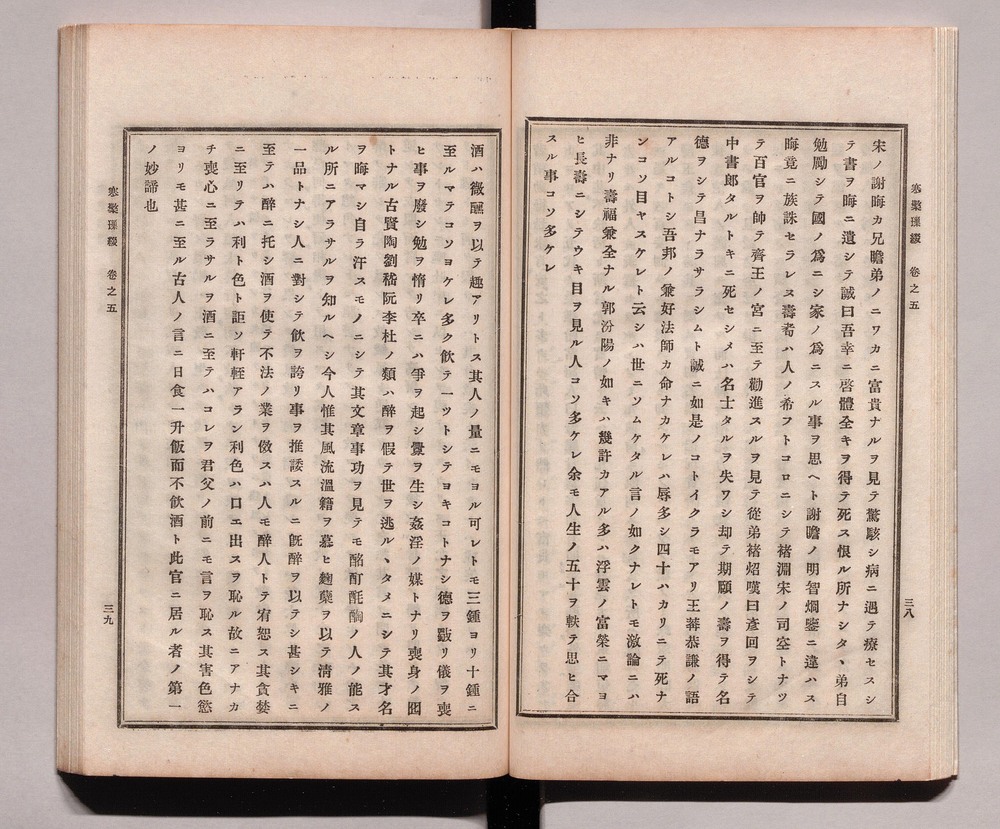 宋ノ謝晦カ兄瞻弟ノニワカニ富貴ナルヲ見テ驚駭シ病ニ遇テ療セスシ
テ書ヲ晦ニ遺シテ誡曰吾幸ニ啓體全キヲ得テ死ス恨ル所ナシタヽ弟自
勉勵シテ國ノ爲ニシ家ノ爲ニスル事ヲ思ヘト謝瞻ノ明智燗鑒ニ違ハス
晦竟ニ族誅セラレヌ壽耈ハ人ノ希フトコロニシテ褚淵宋ノ司空トナツ
テ百官ヲ帥テ齊王ノ宮ニ至テ勸進スルヲ見テ從弟褚炤嘆曰彥回ヲシテ
中書郎タルトキニ死セシメハ名士タルヲ失ワシ却テ期願ノ壽ヲ得テ名
德ヲシテ昌ナラサラシムト誠ニ如是ノコトイクラモアリ王莽恭謙ノ語
アルコトシ吾邦ノ兼好法師カ命ナカケレハ辱多シ四十ハカリニテ死ナ
ンコソ目ヤスケレト云シハ世ニソムケタル言ノ如クナレトモ激論ニハ
非ナリ壽福兼全ナル郭汾陽ノ如キハ幾許カアル多ハ浮雲ノ富榮ニマヨ
ヒ長壽ニシテウキ目ヲ見ル人コソ多ケレ余モ人生ノ五十ヲ軼テ思ヒ合
スル事コソ多ケレ
寒檠璅綴　卷之五
三八
酒ハ微醺ヲ以テ趣アリトス其人ノ量ニモヨル可レトモ三鍾ヨリ十鍾ニ
至ルマテコソヨケレ多ク飮テ一ツトシテヨキコトナシ德ヲ毀リ儀ヲ喪
ヒ事ヲ廢シ勉ヲ惰リ卒ニハ爭ヲ起シ釁ヲ生シ姦淫ノ媒トナリ喪身ノ囮
トナル古賢陶劉嵇阮李杜ノ類ハ醉ヲ假テ世ヲ逃ルヽタメニシテ其才名
ヲ晦マシ自ラ汗スモノニシテ其文章事功ヲ見テモ酩酊酕醄ノ人ノ能ス
ル所ニアラサルヲ知ルヘシ今人惟其風流溫籍ヲ慕ヒ麴蘖ヲ以テ淸雅ノ
一品トナシ人ニ對シテ飮ヲ誇リ事ヲ推諉スルニ旣醉ヲ以テシ甚シキニ
至テハ醉ニ托シ酒ヲ使テ不法ノ業ヲ傚スハ人モ醉人トテ宥恕ス其貪婪
ニ至リテハ利ト色ト詎ソ軒輊アラン利色ハ口エ出スヲ恥ル故ニアナカ
チ喪心ニ至ラサルヲ酒ニ至テハコレヲ君父ノ前ニモ言ヲ恥ス其害色慾
ヨリモ甚ニ至ル古人ノ言ニ日食一升飯而不飮酒ト此官ニ居ル者ノ第一
ノ妙諦也
寒檠璅綴　卷之五
三九